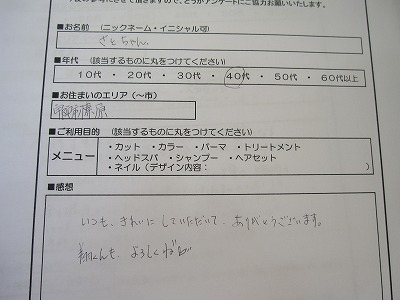 させて頂きますので、どうかアンケートにご協力お願いいたします。
■お名前 (ニックネーム・イニシャル可)
さとちゃん
■年代 (該当するものに丸をつけてください)
10代 ・ 20代 ・ 30代 ・ 40代 ・ 50代 ・ 60代以上
■お住まいのエリア (〜市)
榛原
■ご利用目的 (該当するものに丸をつけてください)
メニュー
・カット ・カラー ・パーマ ・トリートメント
・ヘッドスパ ・シャンプー ・ヘアセット
・ネイル (デザイン内容: )
■感想
いつも、きれいにしていただいて、ありがとうございます。
くんも、よろしくね